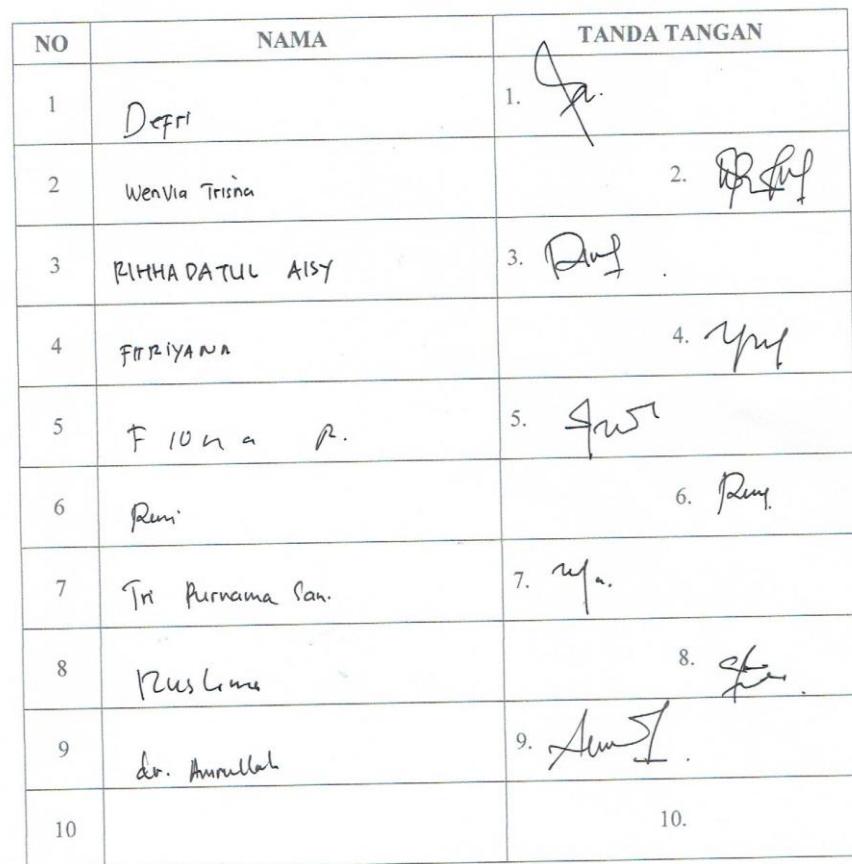 NO NAMA TANDA TANGAN
1 Defri 1.
2 Wenvia Trisna 2.
3 RIHHADATUL AISY 3.
4 FITRIYANA 4.
5 Fiona R. 5.
6 Reni 6.
7 Tri Purnama Sari. 7.
8 Ruslima 8.
9 dr. Amrullah 9.
10 10.